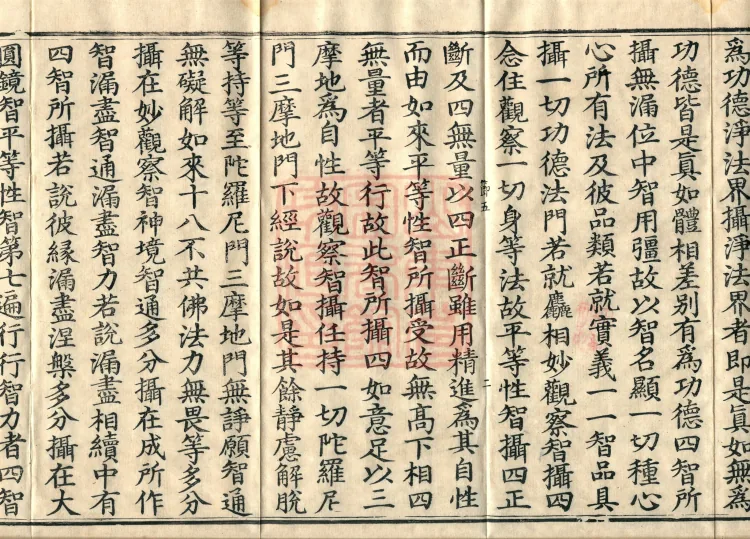 爲功德淨法界攝淨法界者即是眞如無爲
功德皆是眞如體相差別有爲功德四智所
攝無漏位中智用彊故以智名顯一切種心
心所有法及彼品類若就實義一一智品具
攝一切功德法門若就麤相妙觀察智攝四
念住觀察一切身等法故平等性智攝四正
節五
二
斷及四無量以四正斷雖用精進爲其自性
而由如來平等性智所攝受故無高下相四
無量者平等行故此智所攝四如意足以三
摩地爲自性故觀察智攝任持一切陀羅尼
門三摩地門下經說故如是其餘靜慮解脫
等持等至陀羅尼門三摩地門無諍願智通
無礙解如來十八不共佛法力無畏等多分
攝在妙觀察智神境智通多分攝在成所作
智漏盡智通漏盡智力若說漏盡相續中有
四智所攝若說彼緣漏盡涅槃多分攝在大
圓鏡智平等性智第七遍行行智力者四智